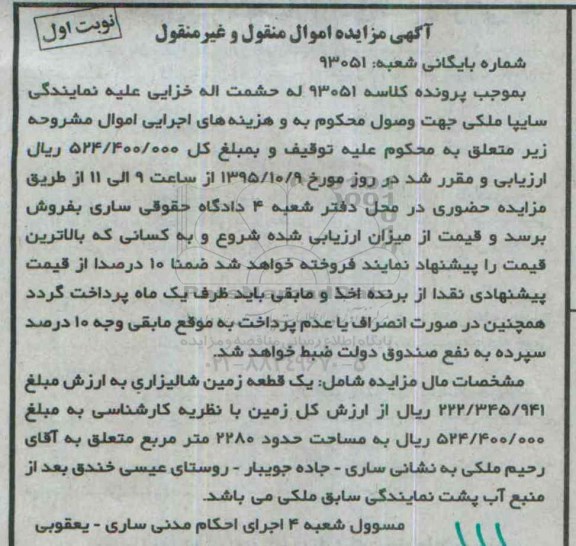 نوبت اول
آگهی مزایده اموال منقول و غیرمنقول
شماره بایگانی شعبه: ۹۳۰۵۱
بموجب پرونده کلاسه ۹۳۰۵۱ له حشمت اله خزایی علیه نمایندگی
سایپا ملکی جهت وصول محکوم به و هزینه های اجرایی اموال مشروحه
زیر متعلق به محکوم علیه توقیف و بمبلغ کل ۵۲۴/۴۰۰/۰۰۰ ریال
ارزیابی و مقرر شد در روز مورخ ۱۳۹۵/۱۰/۹ از ساعت ۹ الی ۱۱ از طریق
مزایده حضوری در محل دفتر شعبه ۴ دادگاه حقوقی ساری بفروش
برسد و قیمت از میزان ارزیابی شده شروع و به کسانی که بالاترین
قیمت را پیشنهاد نمایند فروخته خواهد شد ضمنا ۱۰ درصدا از قیمت
پیشنهادی نقدا از برنده اخذ و مابقی باید ظرف یک ماه پرداخت گردد
همچنین در صورت انصراف یا عدم پرداخت به موقع مابقی وجه ۱۰ درصد
سپرده به نفع صندوق دولت ضبط خواهد شد.
مشخصات مال مزایده شامل: یک قطعه زمین شالیزاری به ارزش مبلغ
۲۲۲/۳۴۵/۹۴۱ ریال از ارزش کل زمین با نظریه کارشناسی به مبلغ
۵۲۴/۴۰۰/۰۰۰ ریال به مساحت حدود ۲۲۸۰ متر مربع متعلق به آقای
رحیم ملکی به نشانی ساری - جاده جویبار - روستای عیسی خندق بعد از
منبع آب پشت نمایندگی سابق ملکی می باشد.
مسوول شعبه ۴ اجرای احکام مدنی ساری - یعقوبی